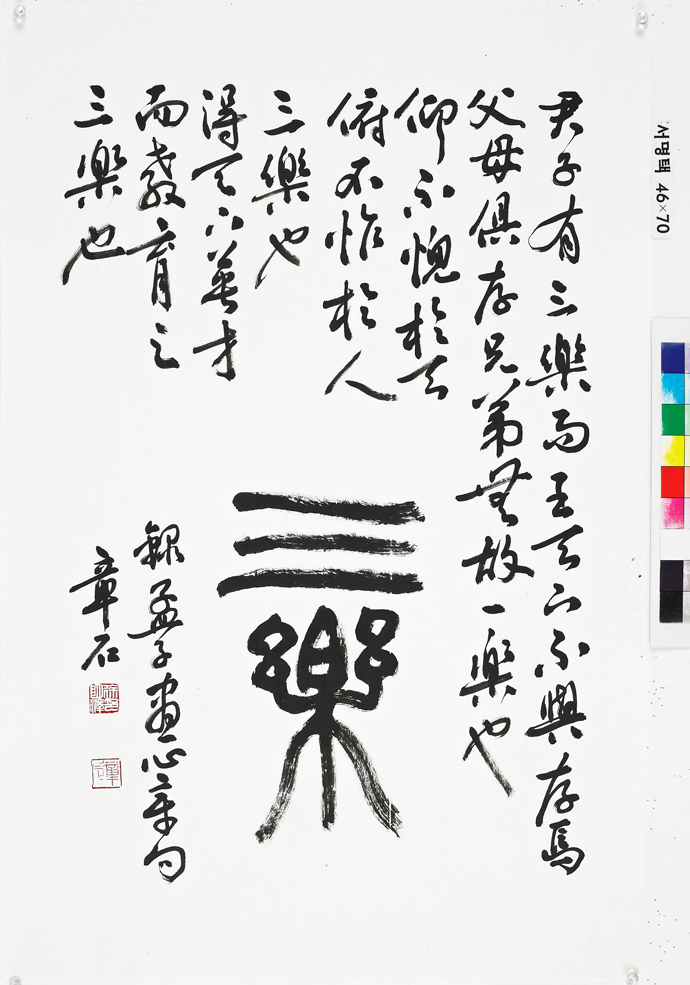 君子有三樂而王天下不與存焉
父母俱存兄弟無故一樂也
仰不愧於天
俯不怍於人
三樂也
得天下英才
而教育之
三樂也
三樂
錄孟子盡心章句
章石
서명택 46×70